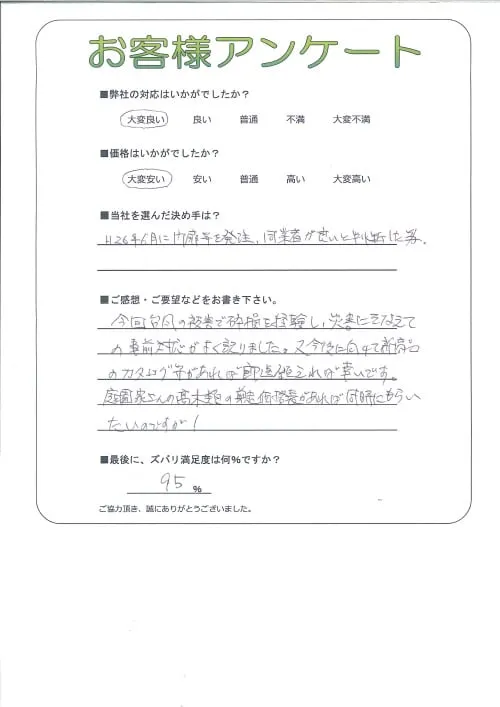 お客様アンケート
■弊社の対応はいかがでしたか？
大変良い 良い 普通 不満 大変不満
■価格はいかがでしたか？
大変安い 安い 普通 高い 大変高い
■当社を選んだ決め手は？
H26年6月に門扉等を発注、同業者が良いと判断した為。
■ご感想・ご要望などをお書き下さい。
今回台風の被害で破損を経験し、災害にそなえて
の事前対応がよく認りました。又今後に向けて新商品
のカタログ等があれば郵送頂ければ幸いです。
庭園 の高木 の 価格表があれば同時にもらい
たいのですが！
■最後に、ズバリ満足度は何％ですか？
95 %
ご協力頂き、誠にありがとうございました。